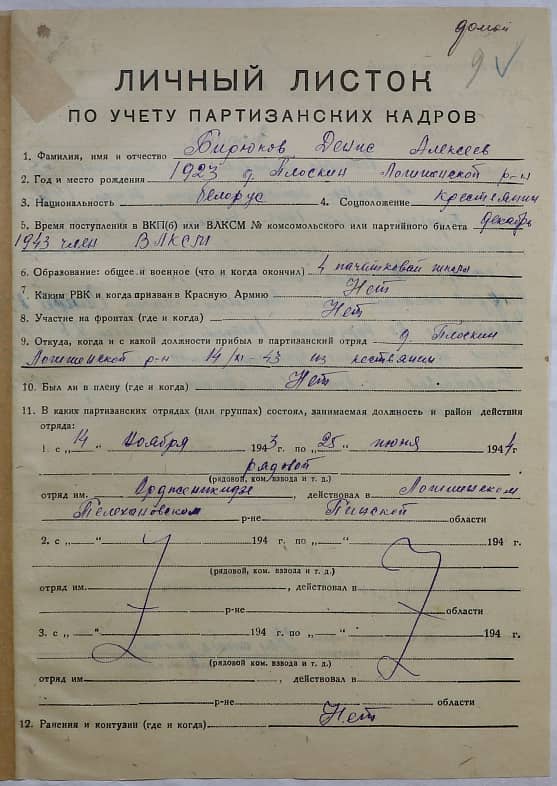 домой
9
ЛИЧНЫЙ ЛИСТОК
ПО УЧЕТУ ПАРТИЗАНСКИХ КАДРОВ
1. Фамилия, имя и отчество Бидюков Денис Алексеев
2. Год и место рождения 1923 д. Плоскин Логишинской р-н
3. Национальность белорус 4. Соцположение крестянин
5. Время поступления в ВКП(б) или ВЛКСМ № комсомольского или партийного билета декабрь
1943 член ВЛКСМ
6. Образование: общее и военное (что и когда окончил) 4
7. Каким РВК и когда призван в Красную Армию Нет
8. Участие на фронтах (где и когда) Нет
9. Откуда, когда и с какой должности прибыл в партизанский отряд д. Плоскин
Логишенской р-н 14/XI-43 из
10. Был ли в плену (где и когда) Нет
11. В каких партизанских отрядах (или группах) состоял, занимаемая должность и район действия
отряда:
1. с „14" Ноября 1943 г. по „25" июня 1944 г.
рядовой
(рядовой, ком. взвода и т. д.)
отряд им. Орджоникидзе, действовал в Логишинском
Телехановском р-не Пинской области
2. с „ " 194 г. по „ " 194 г.
(рядовой, ком. взвода и т. д.)
отряд им. , действовал в
р-не области
3. с „ " 194 г. по „ " 194 г.
(рядовой ком. взвода и т. д.)
отряд им. , действовал в
р-не области
12. Ранения и контузии (где и когда) Нет